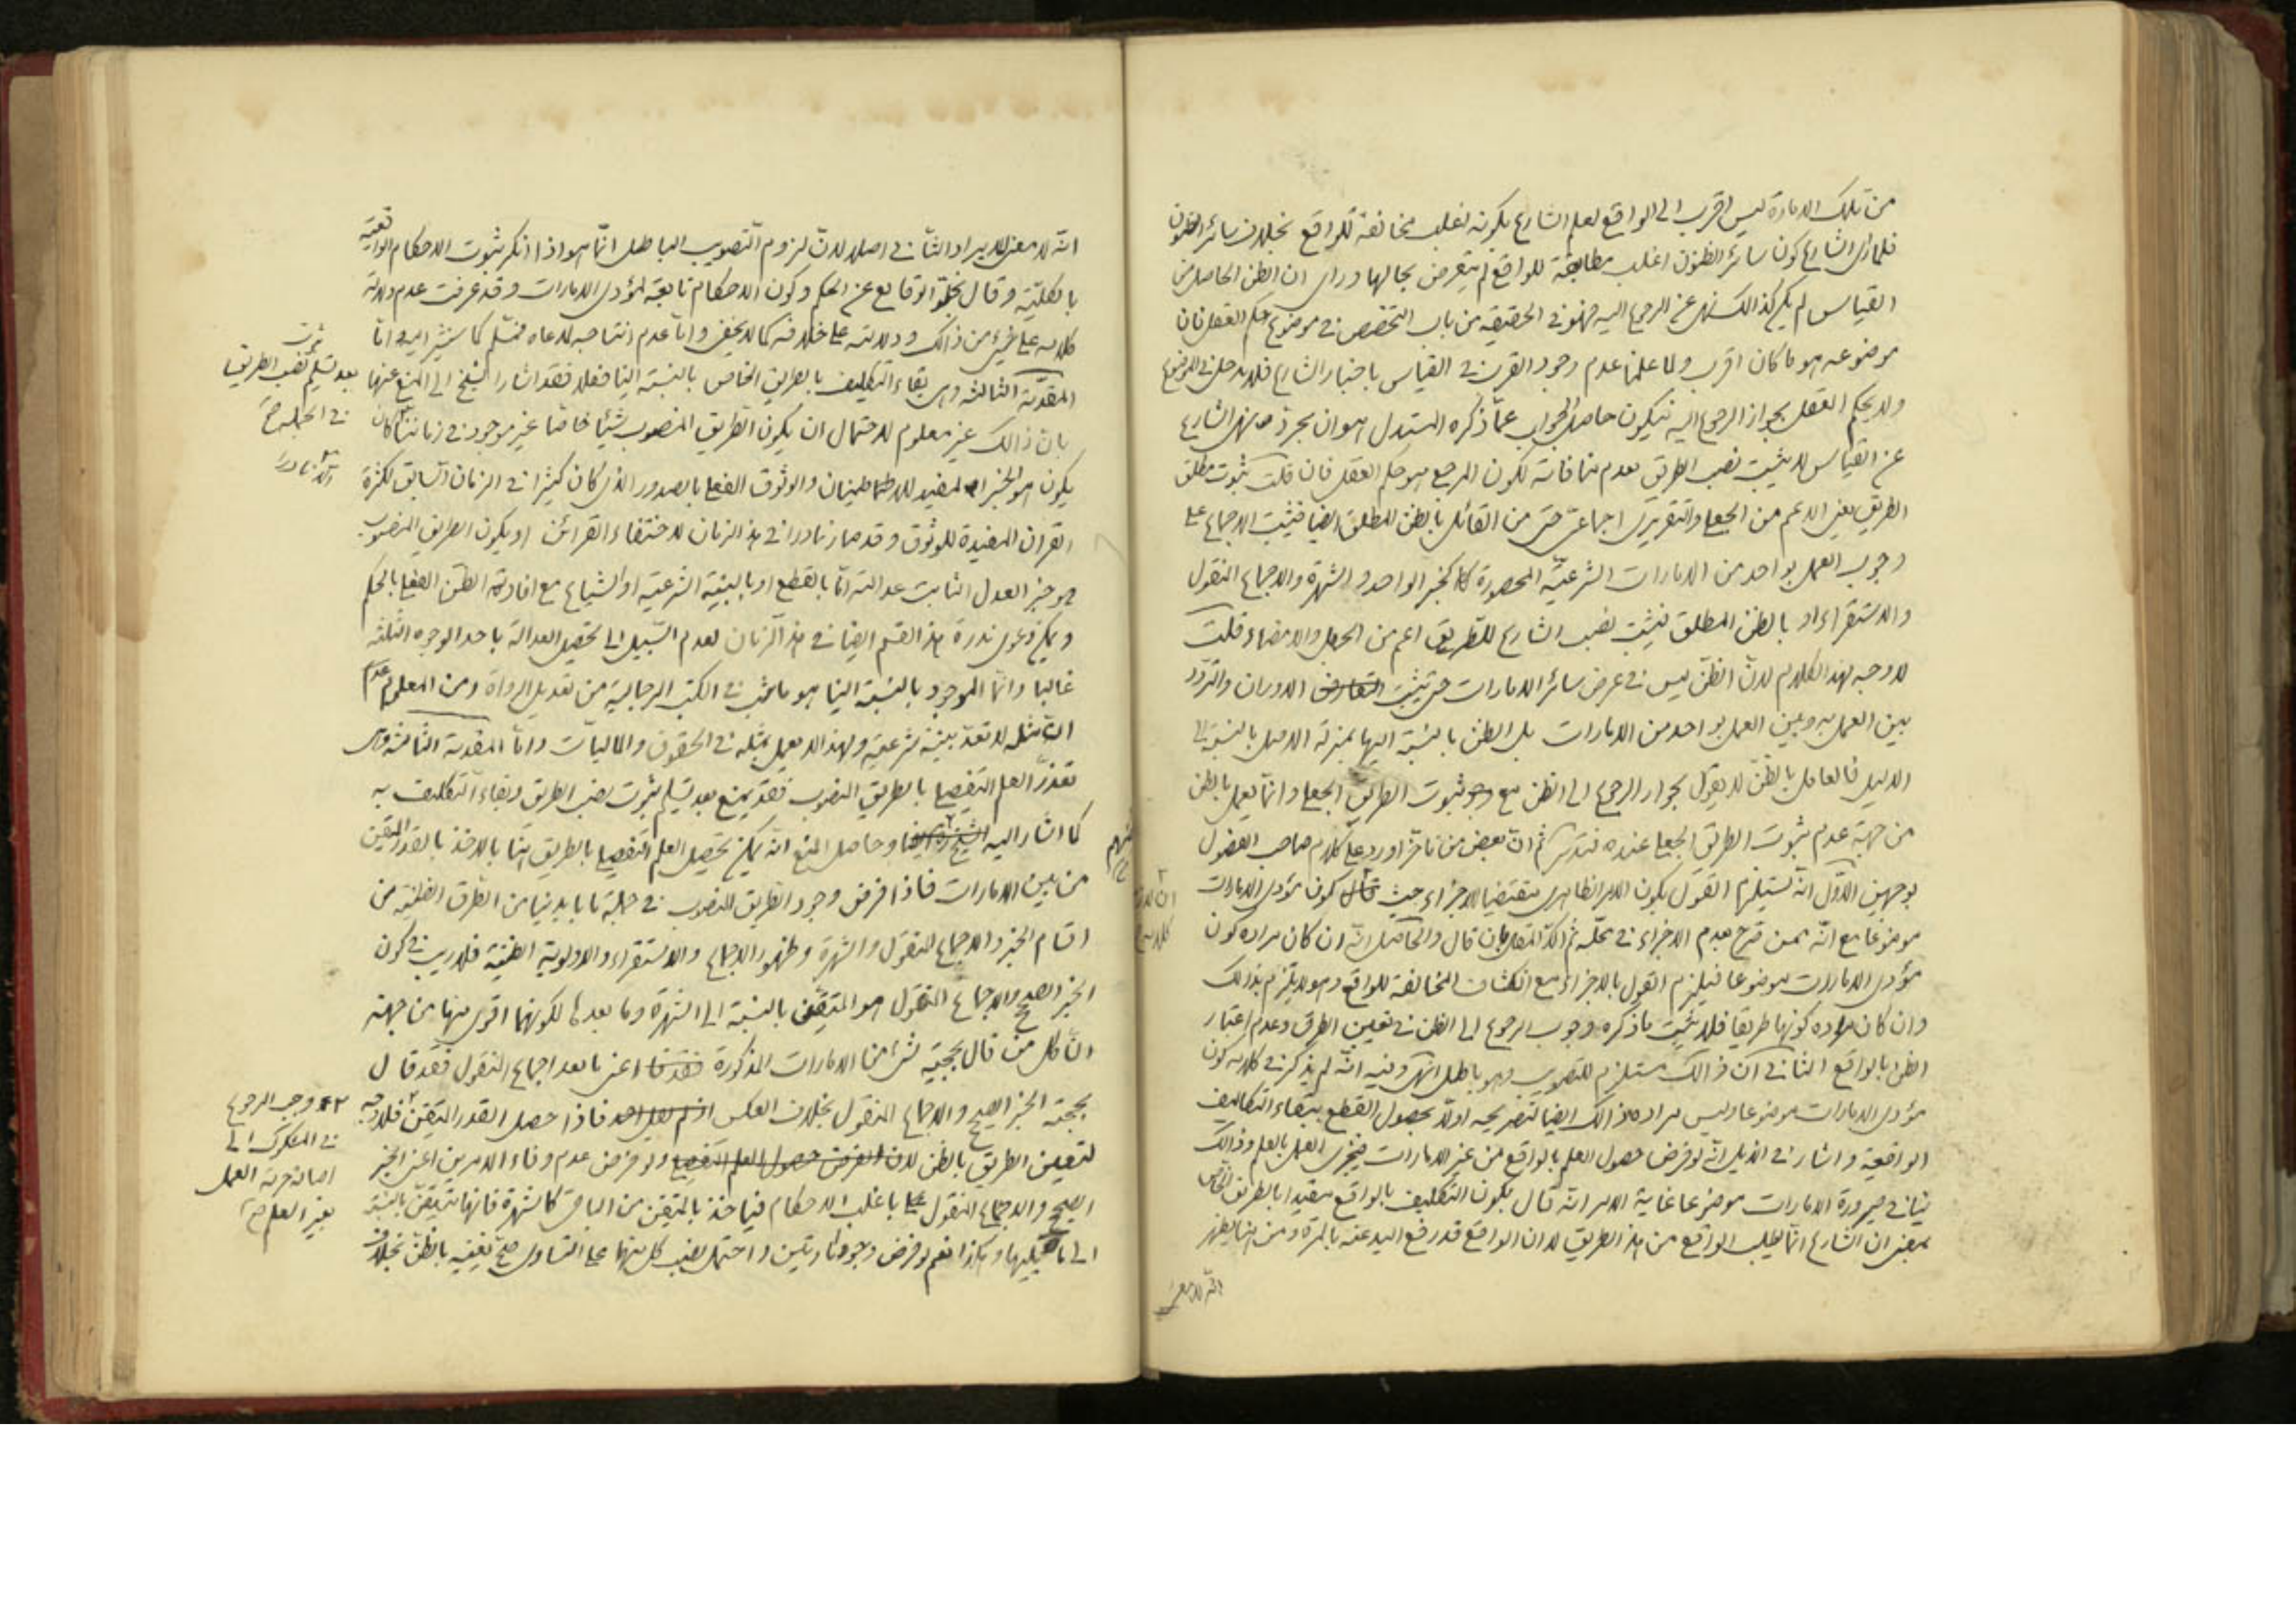 من تلك الامارة ليس اقرب الى الواقع لعلم الشارع بكونه اغلب مخالفة للواقع بخلاف سائر الظنون
فلما رأى الشارع كون سائر الظنون اغلب مطابقة للواقع لم يتعرض بحالها ورأى ان الظن الحاصل من
القياس لم يكن كذالك نهى عن الرجوع اليه فهو في الحقيقة من باب التخصص في موضوع حكم العقل فان
موضوعه هو ما كان اقرب ولما علمنا عدم وجود القرب في القياس باخبار الشارع فلا يدخل في الموضوع
ولا يحكم العقل بجواز الرجوع اليه فيكون حاصل الجواب عما ذكره المستدل هو ان مجرد نهى الشارع
عن القياس لا يثبت نصب الطريق لعدم منافاته لكون المرجع هو حكم العقل فان قلت ثبوت مطلق
الطريق يعنى الاعم من الجعلي والتقريرى اجماعى حتى من القائل بالظن المطلق ايضا فيثبت الاجماع على
وجوب العمل بواحد من الامارات الشرعية المحصورة كالخبر الواحد والشهرة والاجماع المنقول
والاستقراء او بالظن المطلق فيثبت نصب الشارع للطريق اعم من الجعل والامضاء قلت
لا وجه لهذا الكلام لان الظن ليس في عرض سائر الامارات حتى يثبت التعارض الدوران والتردد
بين العمل به وبين العمل بواحد من الامارات بل الظن بالنسبة اليها بمنزلة الاصل بالنسبة الى
الدليل فالعامل بالظن لا يقول بجواز الرجوع الى الظن مع وجو ثبوت الطريق الجعلي وانما يعمل بالظن
من جهة عدم ثبوت الطريق الجعلي عنده فتدبر ثم ان بعض من تاخر اورد على كلام صاحب الفصول
بوجهين الاول انه يستلزم القول بكون الامر الظاهرى مقتضيا للاجزاء حيث قال كون مؤدى الامارات
موضوعا مع انه ممن صرح بعدم الاجزاء في محله ثم قال والحاصل انه ان كان مراده كون
مؤدى الامارات موضوعا فيلزم القول بالاجزاء مع انكشاف المخالفة للواقع وهو لا يلتزم بذالك
وان كان مراده كونها طريقا فلا يثبت ما ذكره وجوب الرجوع الى الظن في تعيين الطرق وعدم اعتبار
الظن بالواقع الثانى ان ذالك مستلزم للتصويب وهو باطل انتهى وفيه انه لم يذكر في كلامه كون
مؤدى الامارات موضوعا وليس مراده ذالك ايضا لتصريحه اولا بحصول القطع ببقاء التكاليف
الواقعية واشار في الذيل انه لو فرض حصول العلم بالواقع من غير الامارات فيجزى العمل بالعلم وذالك
ينافي صيرورة الامارات موضوعا غاية الامر انه قال بكون التكليف بالواقع مقيدا بالطريق الخاص
بمعنى ان الشارع انما يطلب الواقع من هذا الطريق لا ان الواقع قد رفع اليد عنه بالمرة ومن هنا يظهر
انه لا معنى
انه لا معنى للايراد الثانى اصلا لان لزوم التصويب الباطل انما هو اذا انكر ثبوت الاحكام الواقعية
بالكلية وقال بخلو الوقايع عن الحكم وكون الاحكام تابعة لمؤدى الامارات وقد عرفت عدم دلالة
كلامه على شئ من ذالك ودلالته على خلافه كما لا يخفى واما عدم انتاجه لمدعاه فمسلم كما سنشير اليه واما
المقدمة الثالثة وهى بقاء التكليف بالطريق الخاص بالنسبة الينا فعلا فقد اشار الشيخ الى المنع عنها
بعد تسليم ثبوت نصب الطريق
في الجملة صح
بان ذالك غير معلوم لاحتمال ان يكون الطريق المنصوب شيئا خاصا غير موجود في زماننا كان
يكون هو الخبر المفيد للاطمينان والوثوق الفعلي بالصدور الذى كان كثيرا في الزمان السابق لكثرة
القرائن المفيدة للوثوق وقد صار نادرا في هذا الزمان لاختفاء القرائن او يكون الطريق المنصوب
هو خبر العدل الثابت عدالته اما بالقطع او بالبينة الشرعية او الشياع مع افادته الظن الفعلي بالحكم
ويمكن دعوى ندرة هذا القسم ايضا في هذا الزمان لعدم السبيل الى تحصيل العدالة باحد الوجوه الثلثة
غالبا وانما الموجود بالنسبة الينا هو ما يثبت في الكتب الرجالية من تعديل الرواة ومن المعلوم
ان مثله لا تعد بينة شرعية ولهذا لا يعمل بمثله في الحقوق والماليات واما المقدمة الثالثة وهى
تعذر العلم التفصيلي بالطريق المنصوب فقد يمنع بعد تسليم ثبوت نصب الطريق وبقاء التكليف به
كما اشار اليه الشيخ وحاصل المنع انه يمكن تحصيل العلم التفصيلي بالطريق لنا بالاخذ بالقدر المتيقن
من بين الامارات فاذا فرض وجود الطريق المنصوب في جملة ما بايدينا من الطرق الظنية من
اقسام الخبر والاجماع المنقول والشهرة وظهور الاجماع والاستقراء والاولوية الظنية فلا ريب في كون
الخبر الصحيح والاجماع المنقول هو المتيقن بالنسبة الى الشهرة وما بعدها لكونهما اقوى منها من جهة
ان كل من قال بحجية شئ من الامارات المذكورة اعنى ما بعد اجماع المنقول فقد قال
بحجية الخبر الصحيح والاجماع المنقول بخلاف العكس فاذا حصل القدر المتيقن فلا وجه
وجب الرجوع
في المشكوك الى
اصالة حرمة العمل
بغير العلم صح
لتعيين الطريق بالظن لان الفرض حصول العلم التفصيلي ولو فرض عدم وفاء الامرين اعنى الخبر
الصحيح والاجماع المنقول باغلب الاحكام فياخذ بالمتيقن من الباقى كالشهرة فانها متيقن بالنسبة
الى ما يليها وهكذا نعم لو فرض وجود امارتين واحتمل نصب كل منهما على التساوى صح تعيينه بالظن بخلاف